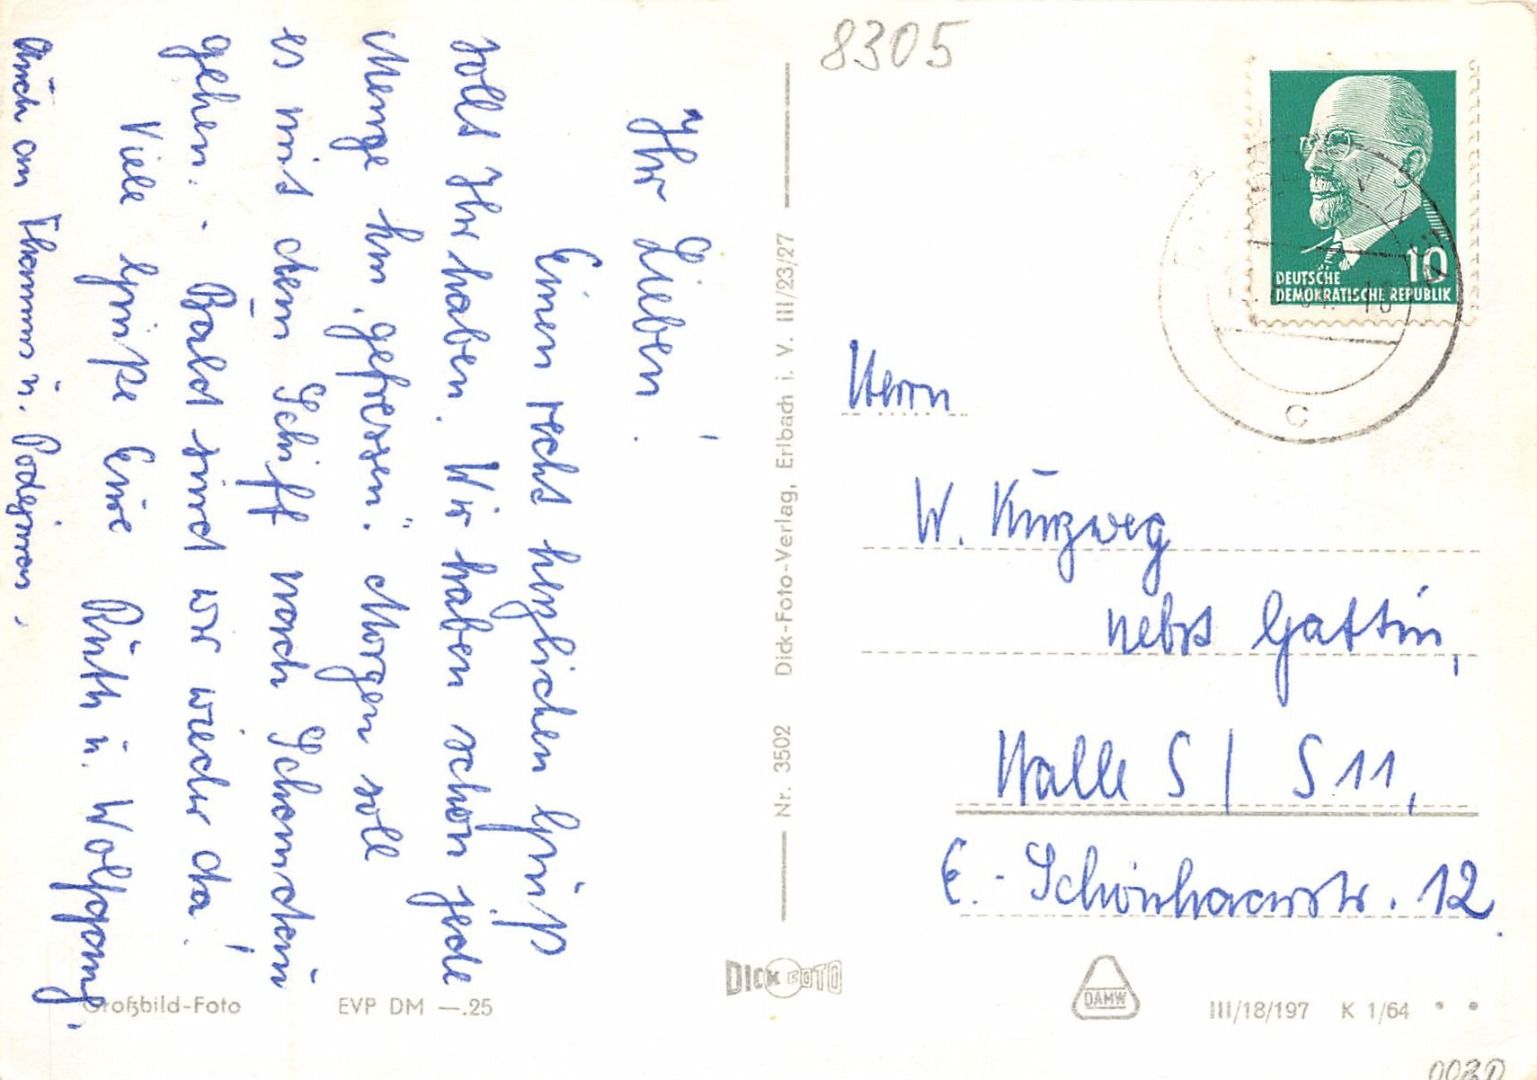 Ihr Lieben!
Einen recht herzlichen Gruß
sollt Ihr haben. Wir haben schon jede
Menge km „gefressen". Morgen soll
es mit dem Schiff nach Schandau
gehen. - Bald sind wir wieder da!
Viele Grüße Eure Ruth u. Wolfgang.
Auch an Thomas u.
8305
DEUTSCHE
DEMOKRATISCHE REPUBLIK
10
C
Herrn
W. Kurzweg
nebst Gattin,
Halle S / S 11,
E.-Schönhaarstr. 12
Nr. 3502 Dick-Foto-Verlag, Erlbach i. V. III/23/27
DICK FOTO
Großbild-Foto EVP DM —.25
DAMW
III/18/197 K 1/64